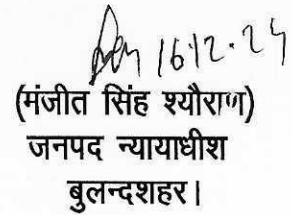 16.12.24
(मंजीत सिंह श्यौराण)
जनपद न्यायाधीश
बुलन्दशहर।